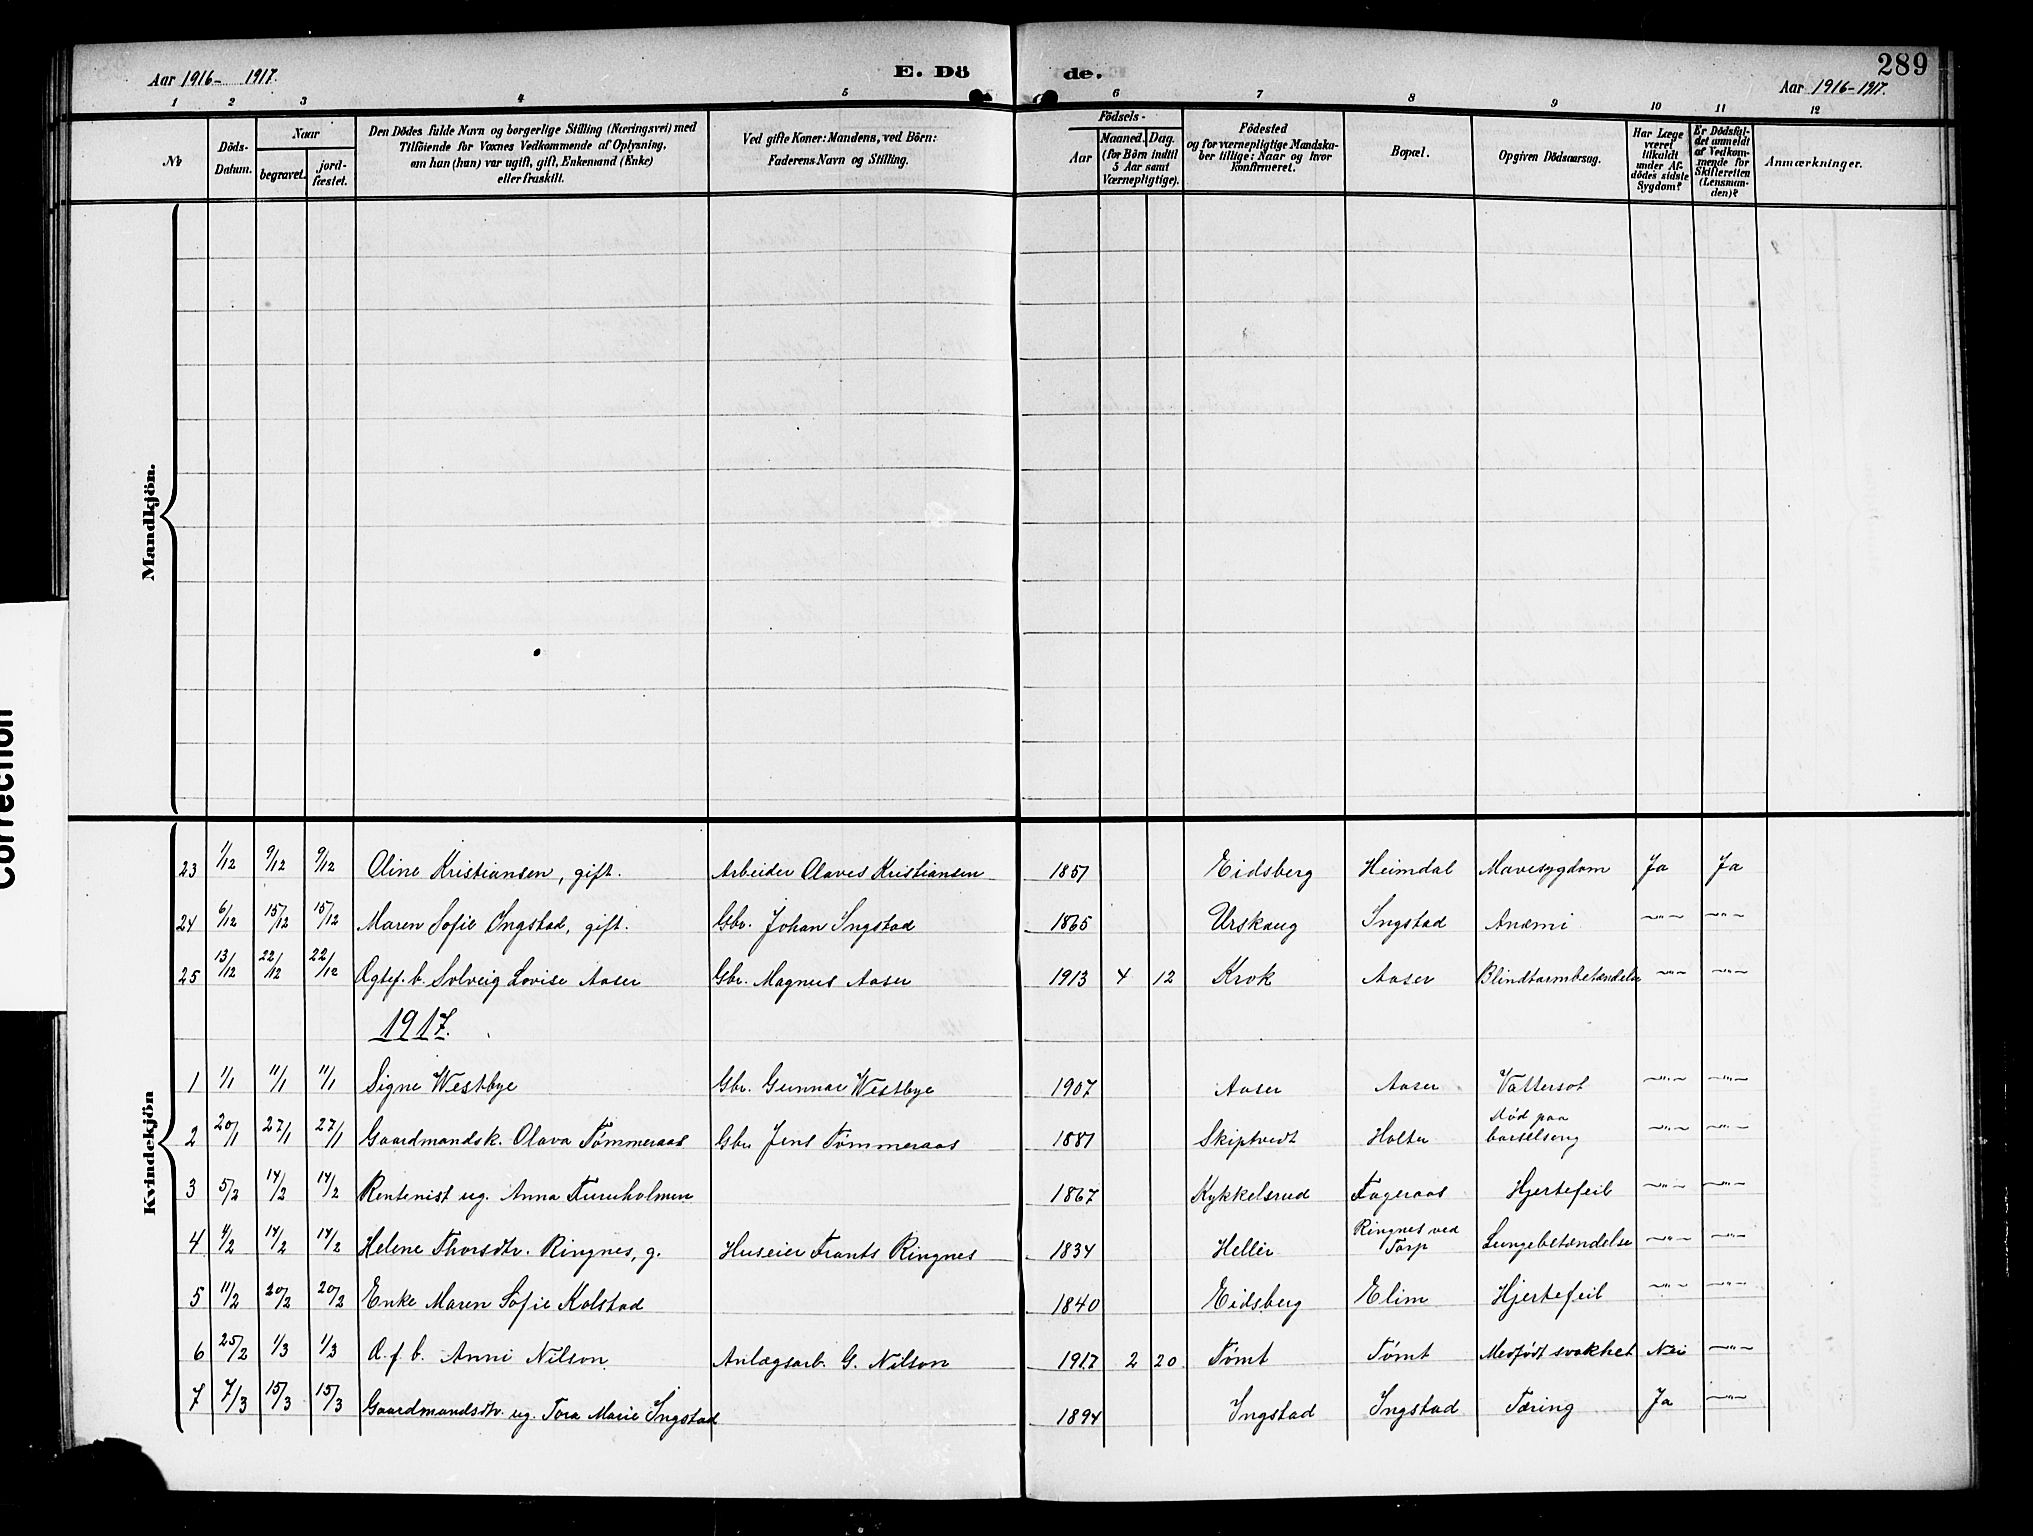 Aar 1916– 1917.
E. Dö
de.
289
Aar 1916–1917.
1 2 3 4 5 6 7 8 9 10 11 12
No
Döds-
Datum.
Naar
begravet.
jord-
fæstet.
Den Dödes fulde Navn og borgerlige Stilling (Næringsvei) med
Tilföiende for Voxnes Vedkommende af Oplysning,
om han (hun) var ugift, gift, Enkemand (Enke)
eller fraskilt.
Ved gifte Koner: Mandens, ved Börn:
Faderens Navn og Stilling.
Födsels-
Aar
Maaned.
Dag.
(for Börn indtil
5 Aar samt
Værnepligtige).
Födested
og for værnepligtige Mandska-
ber tillige: Naar og hvor
konfirmeret.
Bopæl.
Opgiven Dödsaarsag.
Har Læge
været
tilkaldt
under Af-
dödes sidste
Sygdom?
Er Dödsfal-
det anmeldt
af Vedkom-
mende for
Skifteretten
(Lensman-
den)?
Anmærkninger.
Mandkjön.
Kvindekjön
23 1/12 9/12 9/12 Oline Kristiansen, gift. Arbeider Olaves Kristiansen 1857 Eidsberg Heimdal Mavesygdom Ja Ja
24 6/12 15/12 15/12 Maren Sofie Ingstad, gift. Gbr. Johan Ingstad 1865 Urskaug Ingstad Anæmi —"— —"—
25 13/12 22/12 22/12 Ægtef. b. Solveig Lovise Aaser Gbr. Magnus Aaser 1913 4 12 Krok Aaser Blindtarmbetændelse —"— —"—
1917.
1 1/1 11/1 11/1 Signe Westbye Gbr. Gunnar Westbye 1907 Aaser Aaser Vattersot —"— —"—
2 20/1 27/1 27/1 Gaardmandsk. Olava Tømmeraas Gbr. Jens Tømmeraas 1881 Skiptvedt Holter Død paa
barselseng —"— —"—
3 5/2 14/2 14/2 Rentenist ug. Anna Furuholmen 1867 Kykkelsrud Fageraas Hjertefeil —"— —"—
4 4/2 14/2 14/2 Helene Thorsdtr. Ringnes, g. Huseier Frants Ringnes 1834 Heller Ringnes ved
Torp Lungebetændelse —"— —"—
5 11/2 20/2 20/2 Enke Maren Sofie Kolstad 1840 Eidsberg Elim Hjertefeil —"— —"—
6 25/2 1/3 1/3 Æ. f. b. Anni Nilson Anlægsarb. G. Nilson 1917 2 20 Tømt Tømt Medfødt svakhet Nei —"—
7 7/3 15/3 15/3 Gaardmandsdtr. ug. Tora Marie Ingstad 1894 Ingstad Ingstad Tæring Ja —"—
Correction